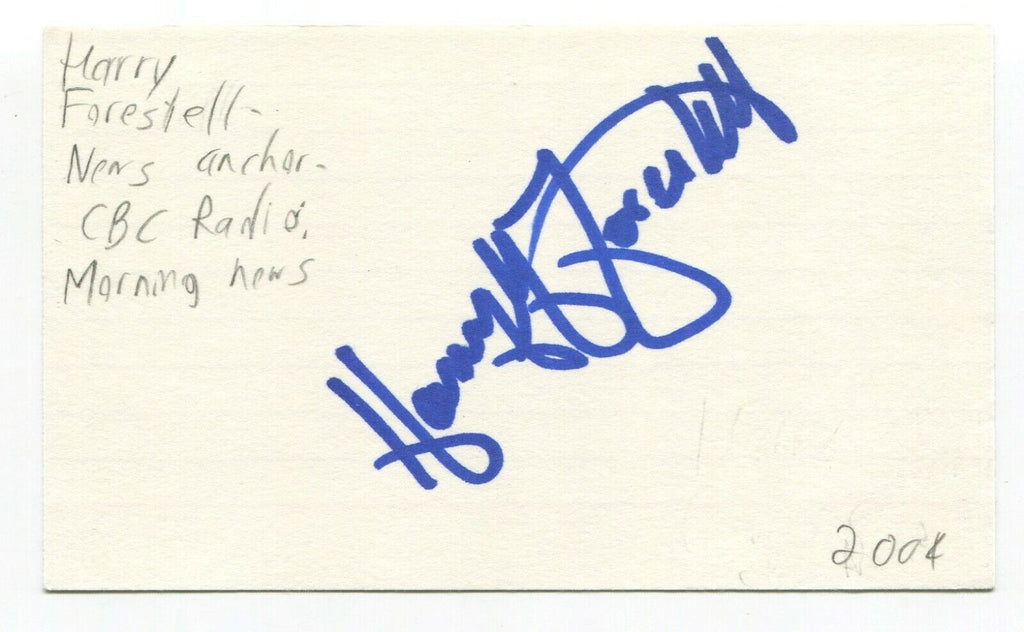 Harry
Forestell-
News anchor-
CBC Radio,
Morning news
Harry Forestell
2004